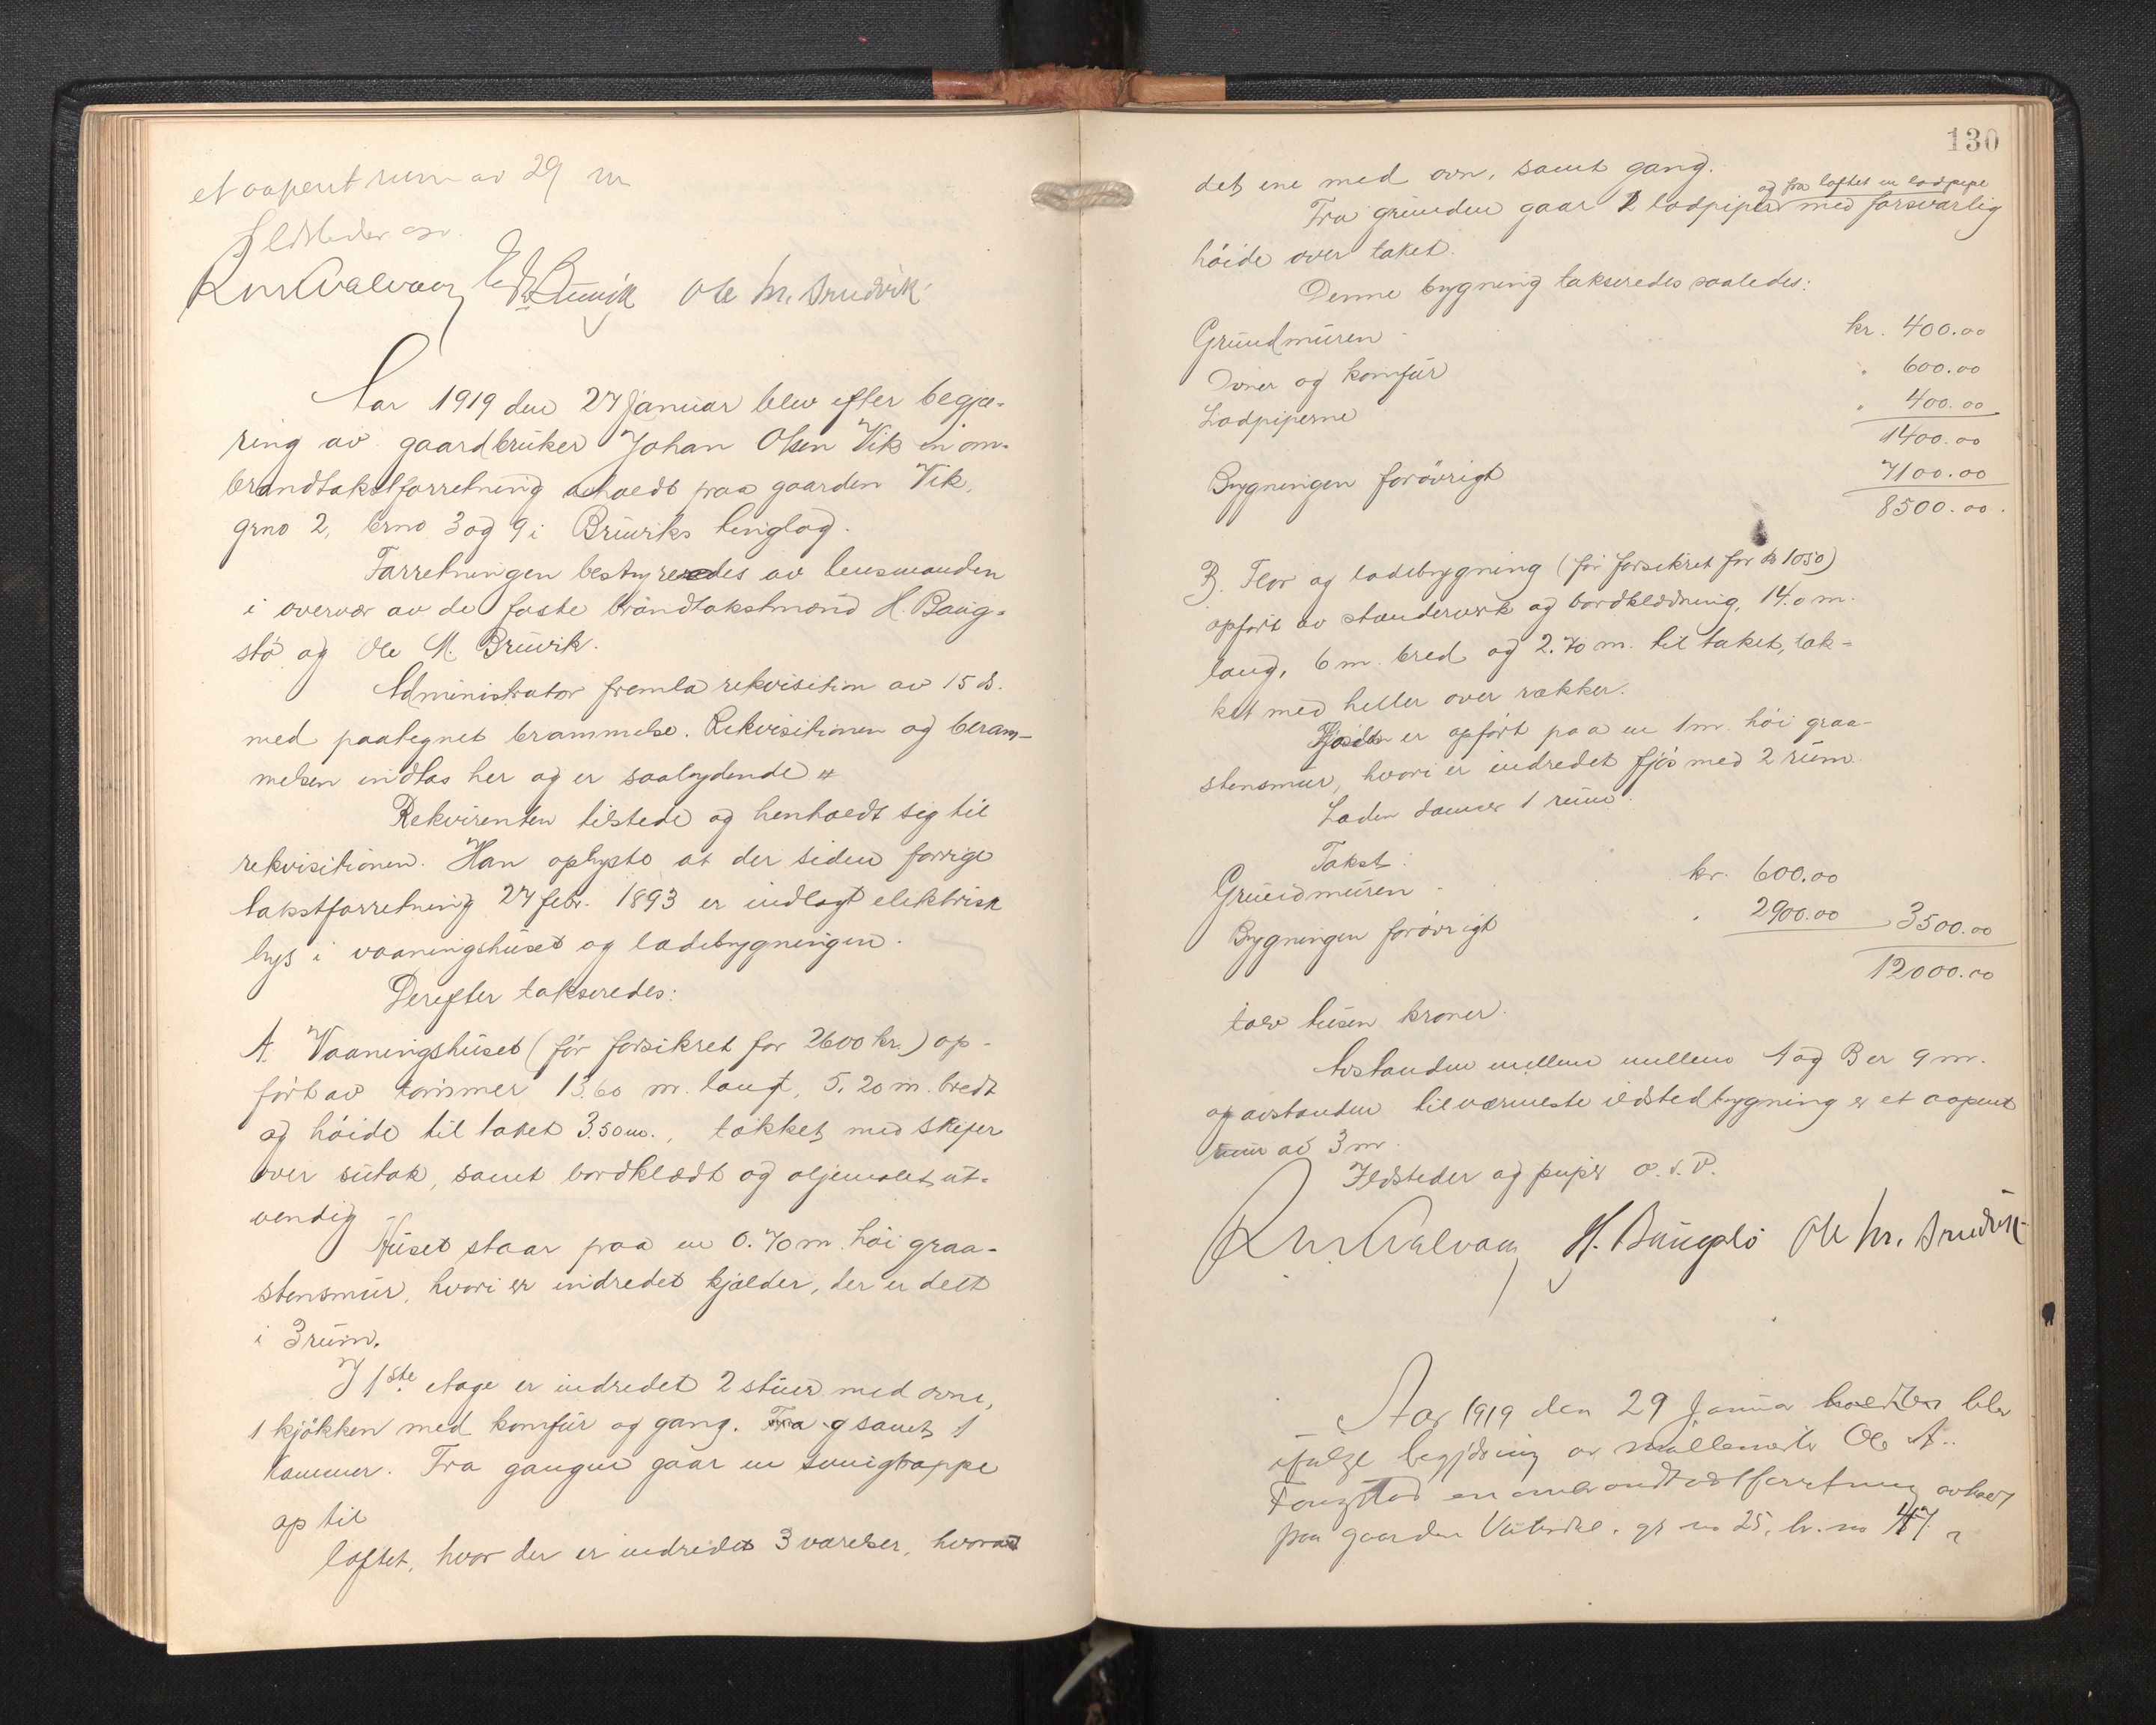 et aapent rum av 29 m
Ildsteder osv.
Ole M. Bruvik
Aar 1919 den 27 Januar blev efter begjæ-
ring av gaardbruker Johan Olsen Vik en om-
brandtakstforretning avholdt paa gaarden Vik,
grno 2, brno 3 og 9 i Bruviks tinglag.
Forretningen bestyredes av lensmanden
i overvær av de faste brandtakstmænd H. Baug-
stö og Ole M. Bruvik.
Administrator fremla rekvisition av 15 ds.
med paategnet berammelse. Rekvisitionen og beram-
melsen indtas her og er saalydende
Rekvirenten tilstede og henholdt sig til
rekvisitionen. Han oplyste at der siden forrige
takstforretning 27 febr. 1893 er indlagt elektrisk
lys i vaaningshuset og ladebygningen.
Derefter takseredes:
A. Vaaningshuset (før forsikret for 2600 kr.) op-
ført av tømmer 13.60 m. langt, 5.20 m. bredt
og høide til taket 3.50 m., tækket med skifer
over sutak, samt bordklædt og oljemalet ut-
vendig
Huset staar paa en 0.70 m. høi graa-
stensmur, hvori er indredet kjælder, der er delt
i 3 rum.
I 1ste etage er indredet 2 stuer med ovne,
1 kjøkken med komfur og gang. Fra g samt 1
kammer. Fra gangen gaar en svingtrappe
op til
loftet, hvor der er indredet 3 værelser, hvorav
130
det ene med ovn, samt gang.
og fra loftet en lodpipe
Fra grunden gaar 2 lodpiper med forsvarlig
høide over taket.
Denne bygning takseredes saaledes:
Grundmuren kr. 400.00
Ovner og komfur " 600.00
Lodpiperne " 400.00
1400.00
Bygningen forøvrigt 7100.00
8500.00.
B. Flor og ladebygning (før forsikret for kr 1050)
opført av stenderverk og bordklædning, 14.0 m.
lang, 6 m. bred og 2.70 m. til taket, tæk-
ket med heller over rækker.
er opført paa en 1 m. høi graa-
stensmur, hvori er indredet fjøs med 2 rum.
Laden danner 1 rum.
Takst:
Grundmuren kr. 600.00
Bygningen forøvrigt " 2900.00 3500.00
12000.00
tolv tusen kroner.
Avstanden mellem mellem A og B er 9 m.
og avstanden til nærmeste ildstedbygning er et aapent
rum av 3 m.
Ildsteder og piper o.s.v.
H. Baugstö Ole M. Bruvik
Aar 1919 den 29 Januar blev
ifølge begjæring av Ole A.
en ombrandtakstforretning avholdt
paa gaarden gr no 25, br. no 47 i